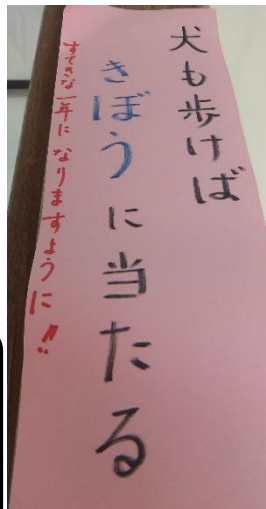 犬も歩けば
きぼうに当たる
すてきな一年になりますように!!